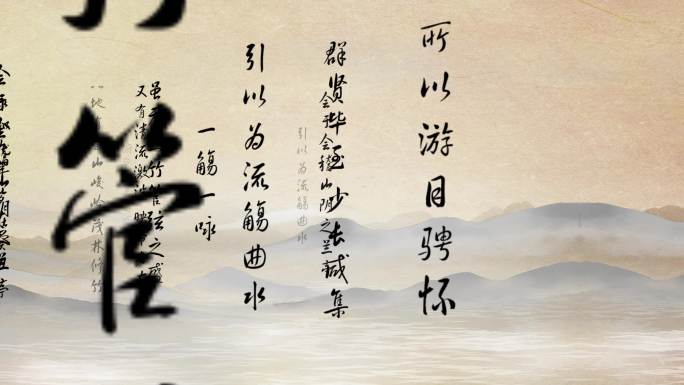 所以游目骋怀
群贤毕至少长咸集
会于会稽山阴之兰
引以为流觞曲水
引以为流觞曲水
一觞一咏
虽竹管弦之盛
又有清流激
地山峻岭茂林修竹
管